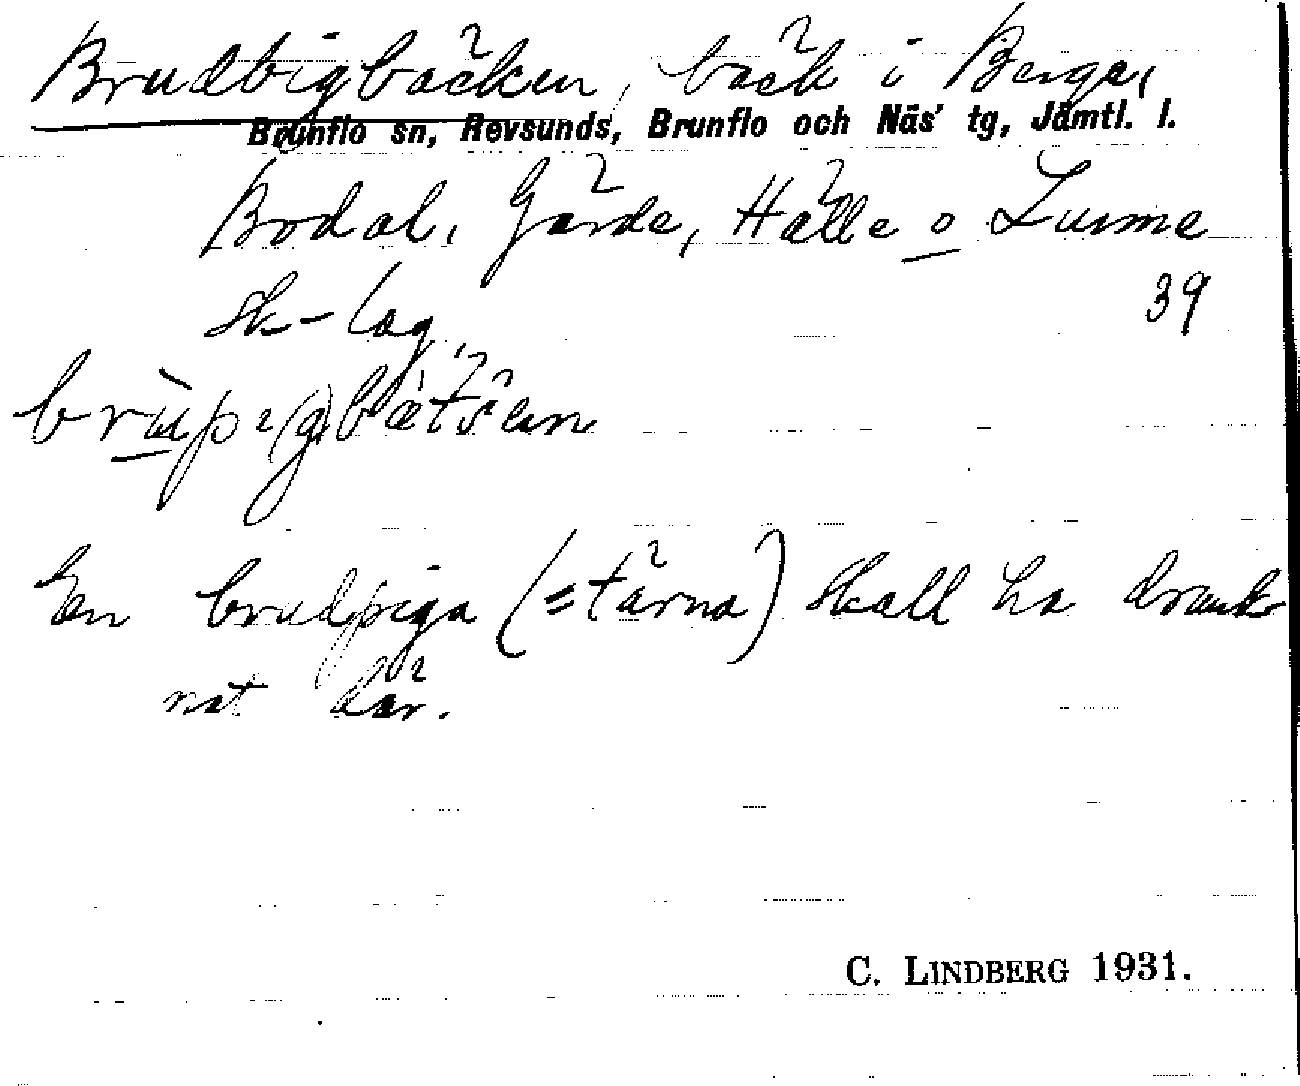 Brudbigbäcken, bäck i Berge,
Brunflo sn, Revsunds, Brunflo och Näs' tg, Jämtl. l.
Bodal, Gärde, Hälle o Lunne
sk-lag 39
En brudpiga (=tärna) skall ha drunk-
nat där.
C. LINDBERG 1931.